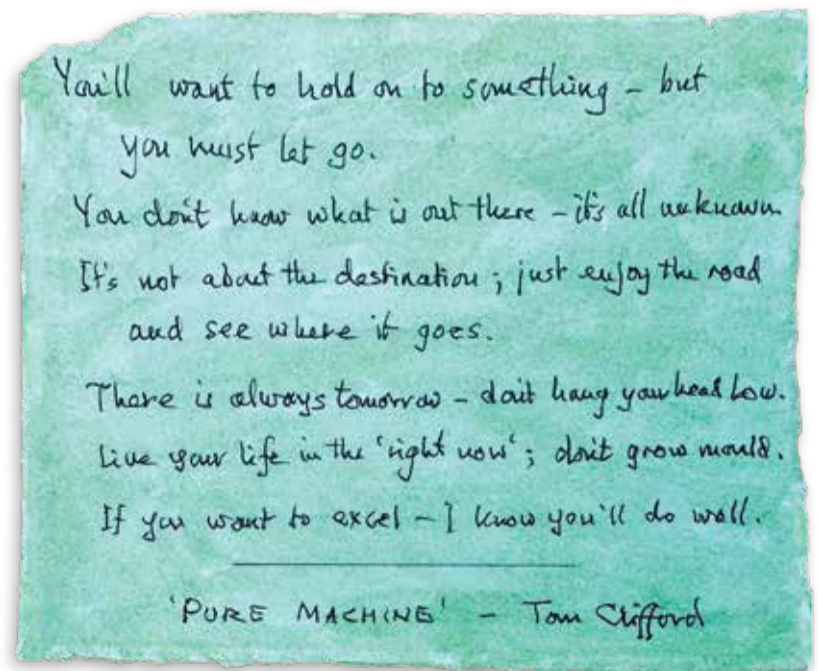 You'll want to hold on to something – but
you must let go.
You don't know what is out there – it's all unknown.
It's not about the destination; just enjoy the road
and see where it goes.
There is always tomorrow – don't hang your head low.
Live your life in the 'right now'; don't grow mould.
If you want to excel – I know you'll do well.
'PURE MACHINE' – Tom Clifford